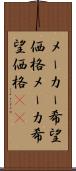 メーカー希望
価格メーカ希
望価格